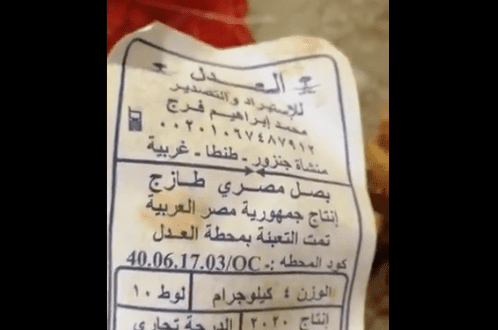 العدل
للإستيراد والتصدير
محمد إبراهيم فرج
٠٠٢٠١٠٦٧٤٨٧٩١٢
منشاة جنزور - طنطا - غربية
بصل مصري طازج
إنتاج جمهورية مصر العربية
تمت التعبئة بمحطة العدل
كود المحطه :- 40.06.17.03/OC
الوزن ٤ كيلوجرام لوط ١٠
إنتاج ٢٠٢٠ الدرجة تجاري